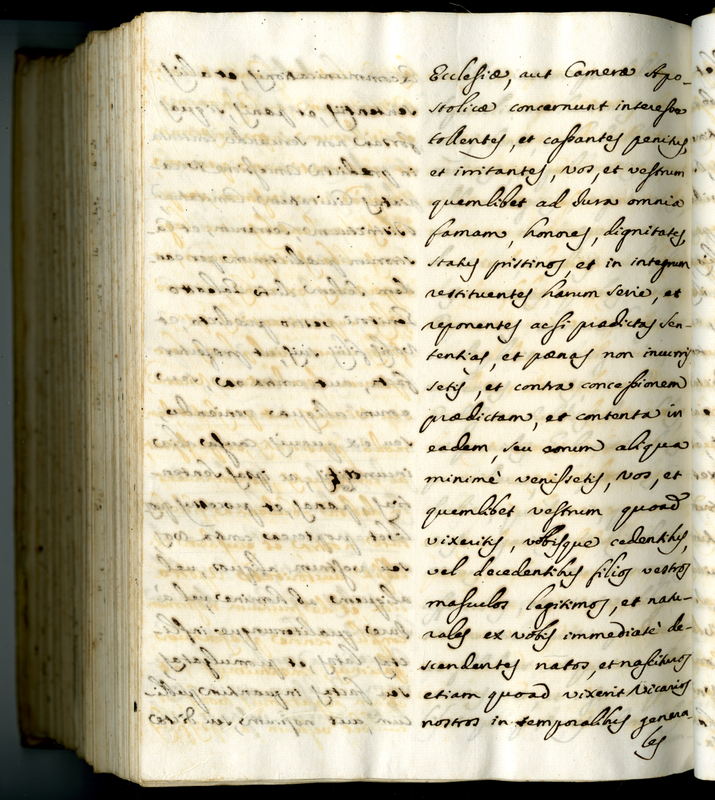 Ecclesiæ, aut Cameræ Apo-
stolicæ concernunt interesse
tollentes, et cassantes penitus,
et irritantes, vos, et vestrum
quemlibet ad dura omnia
famam, honores, dignitates,
status pristinos, et in integrum
restituentes harum serie, et
reponentes acsi prædictas sen-
tentias, et pænas non incurris
setis, et contra concessionem
prædictam, et contenta in
eadem, seu eorum aliqua
minimè venissetis, Vos, et
quemlibet vestrum quoad
vixeritis, vobisque cedentibus,
vel decedentibus filios vestros
masculos legitimos, et natu-
rales ex vobis immediatè de-
scendentes natos, et nascituros
etiam quoad vixerit Vicarios
nostros in temporalibus genera-
les